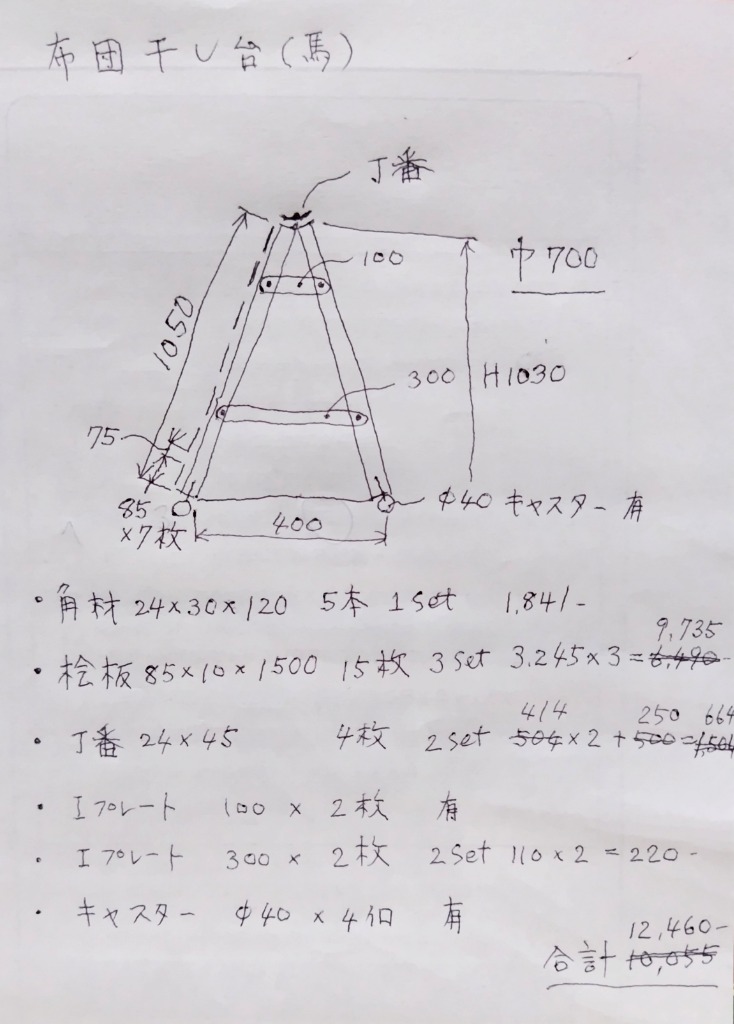 布団干し台(馬)
丁番
100
巾700
1050
300
H1030
75
85
×7枚
400
φ40 キャスター 有
・角材 24×30×120 5本 1set 1,841-
9,735
・桧板 85×10×1500 15枚 3set 3.245×3=6,490-
414 250 664
・丁番 24×45 4枚 2set 504×2+500=1,504
・Iプレート 100×2枚 有
・Iプレート 300×2枚 2set 110×2=220-
・キャスター φ40×4個 有
12,460-
合計 10,055